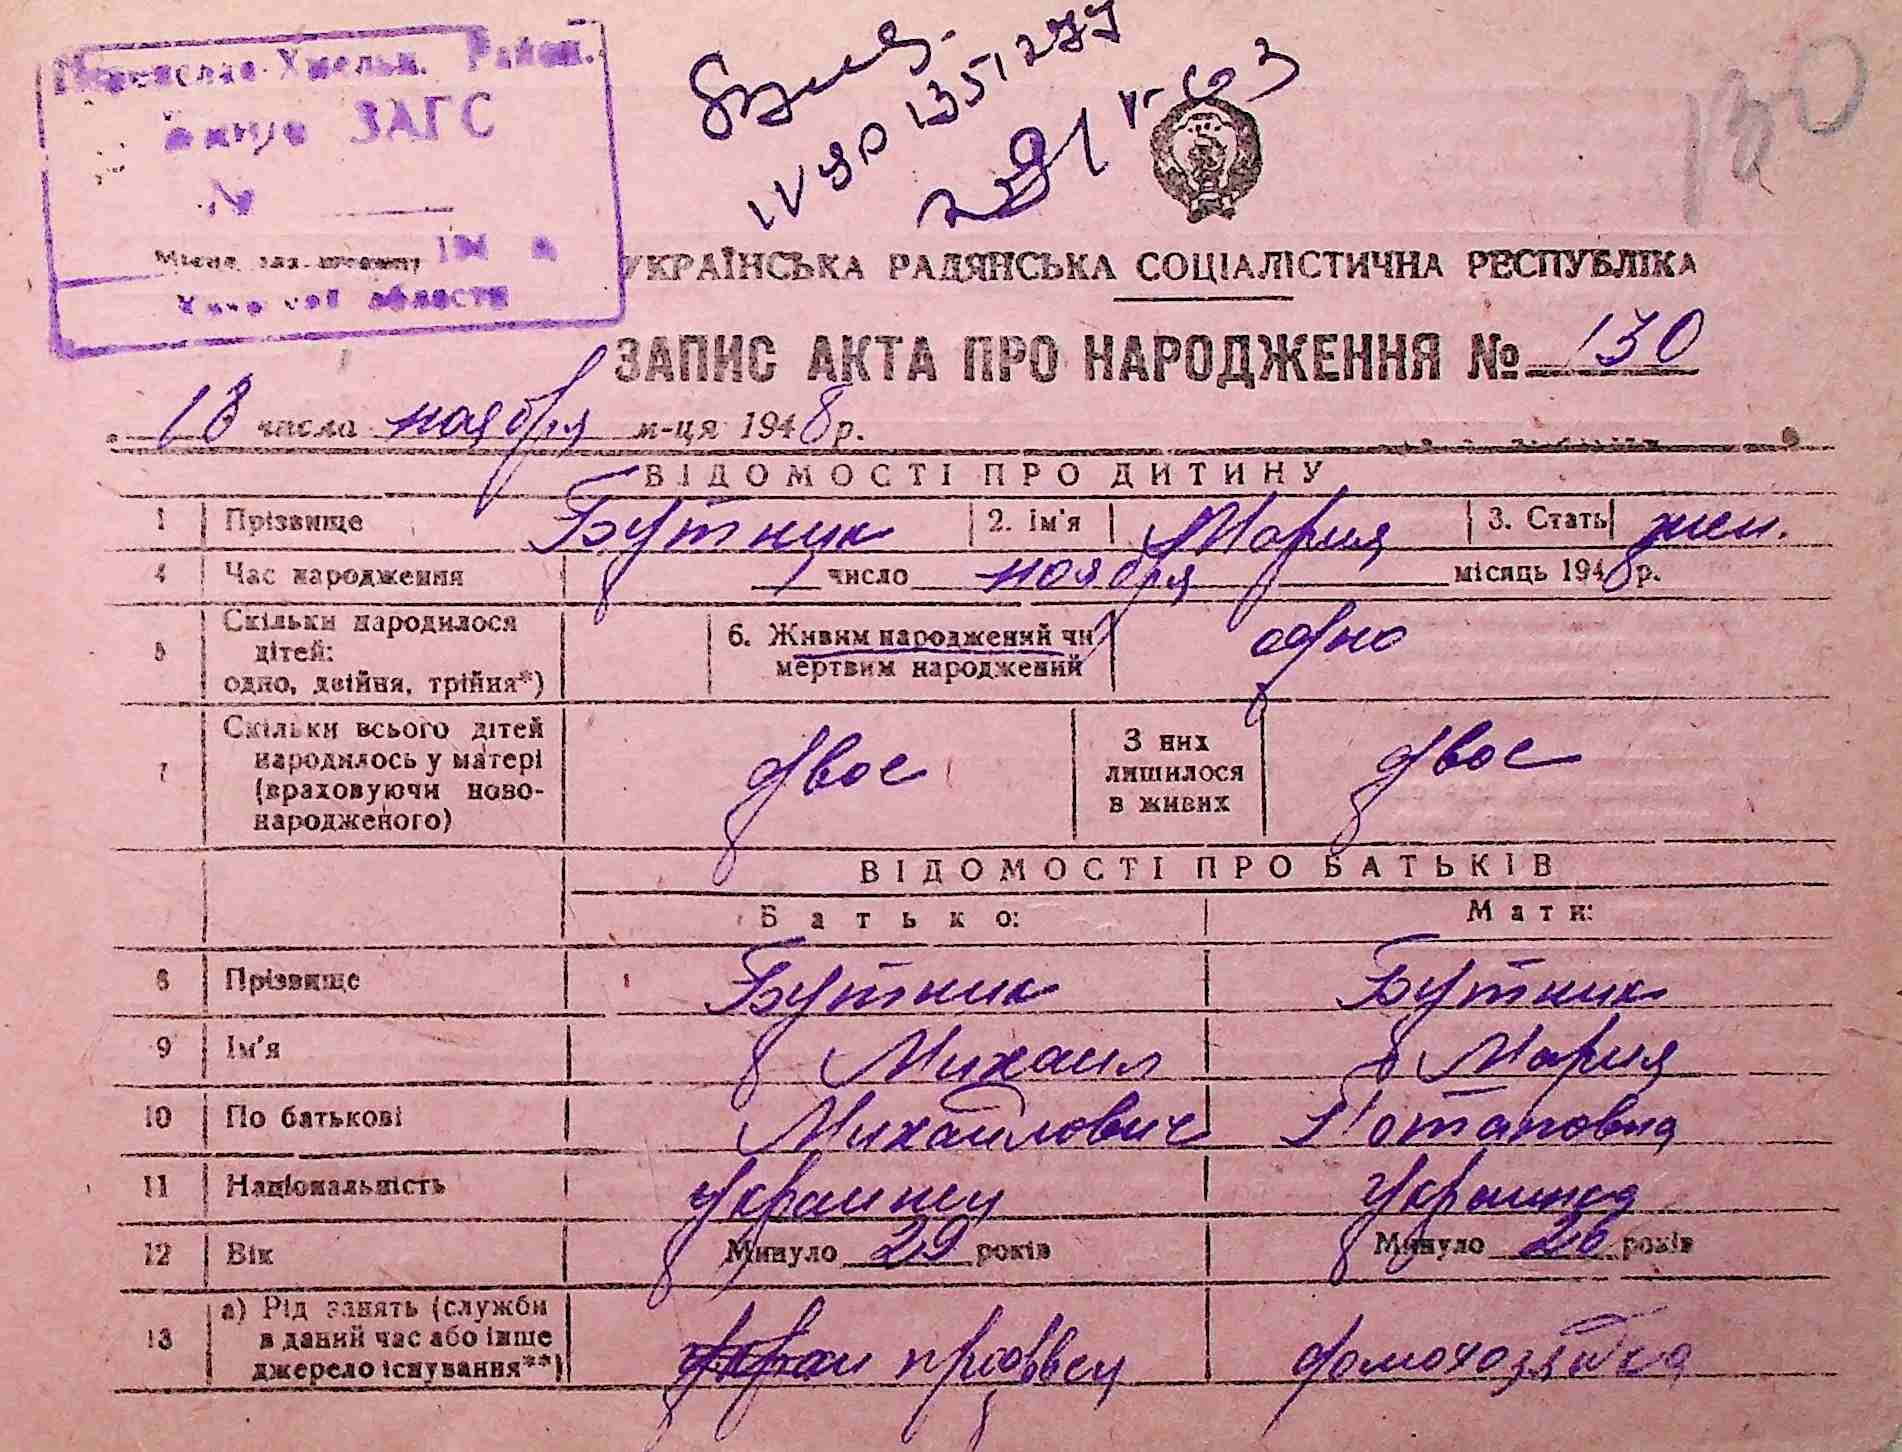 Переяслав-Хмельн. Район.
бюро ЗАГС
№
194 р.
области
1351277
130
УКРАЇНСЬКА РАДЯНСЬКА СОЦІАЛІСТИЧНА РЕСПУБЛІКА
ЗАПИС АКТА ПРО НАРОДЖЕННЯ № 130
18 числа ноября м-ця 1948 р.
ВІДОМОСТІ ПРО ДИТИНУ
1 Прізвище Бутник 2. Ім'я Мария 3. Стать жен.
4 Час народження 1 число ноября місяць 1948 р.
5 Скільки народилося дітей: одно, двійня, трійня*) 6. Живим народжений чи мертвим народжений одно
7 Скільки всього дітей народилось у матері (враховуючи ново-народженого) двое З них лишилося в живих двое
ВІДОМОСТІ ПРО БАТЬКІВ
Батько: Мати:
8 Прізвище Бутник Бутник
9 Ім'я Михаил Мария
10 По батькові Михайлович Потаповна
11 Національність Украинец Украинка
12 Вік Минуло 29 років Минуло 26 років
13 а) Рід занять (служби в даний час або інше джерело існування**) продавец домохозяйка